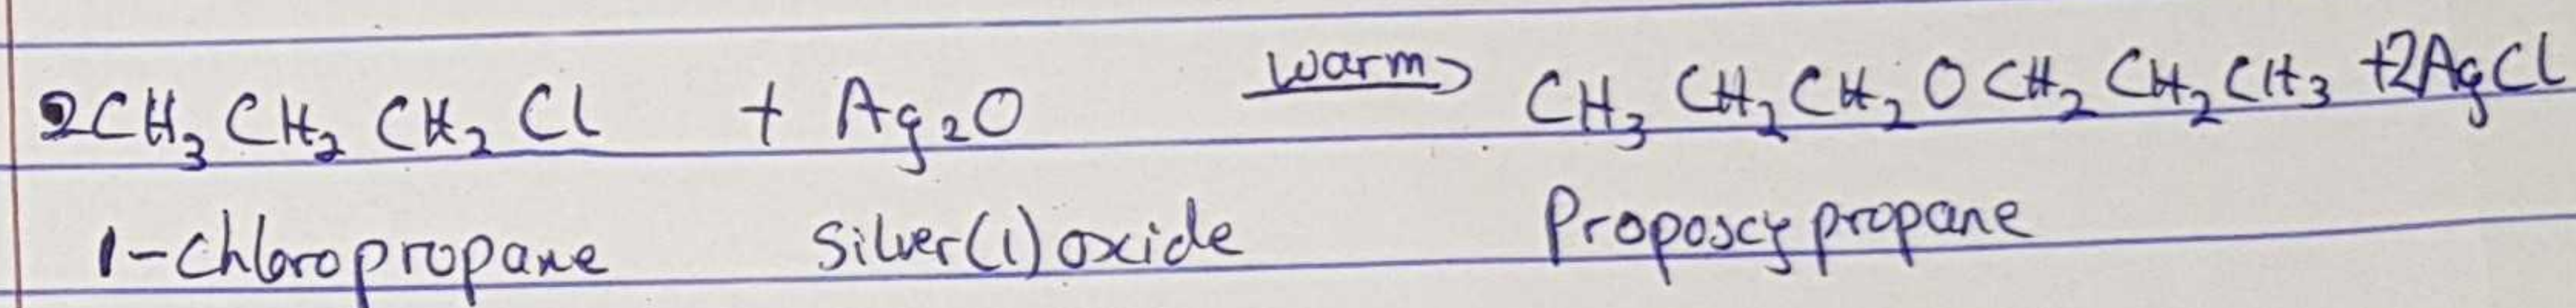 2CH₃CH₂CH₂Cl + Ag₂O warm→ CH₃CH₂CH₂OCH₂CH₂CH₃ +2AgCl
1-chloropropane silver(1)oxide Propoxypropane